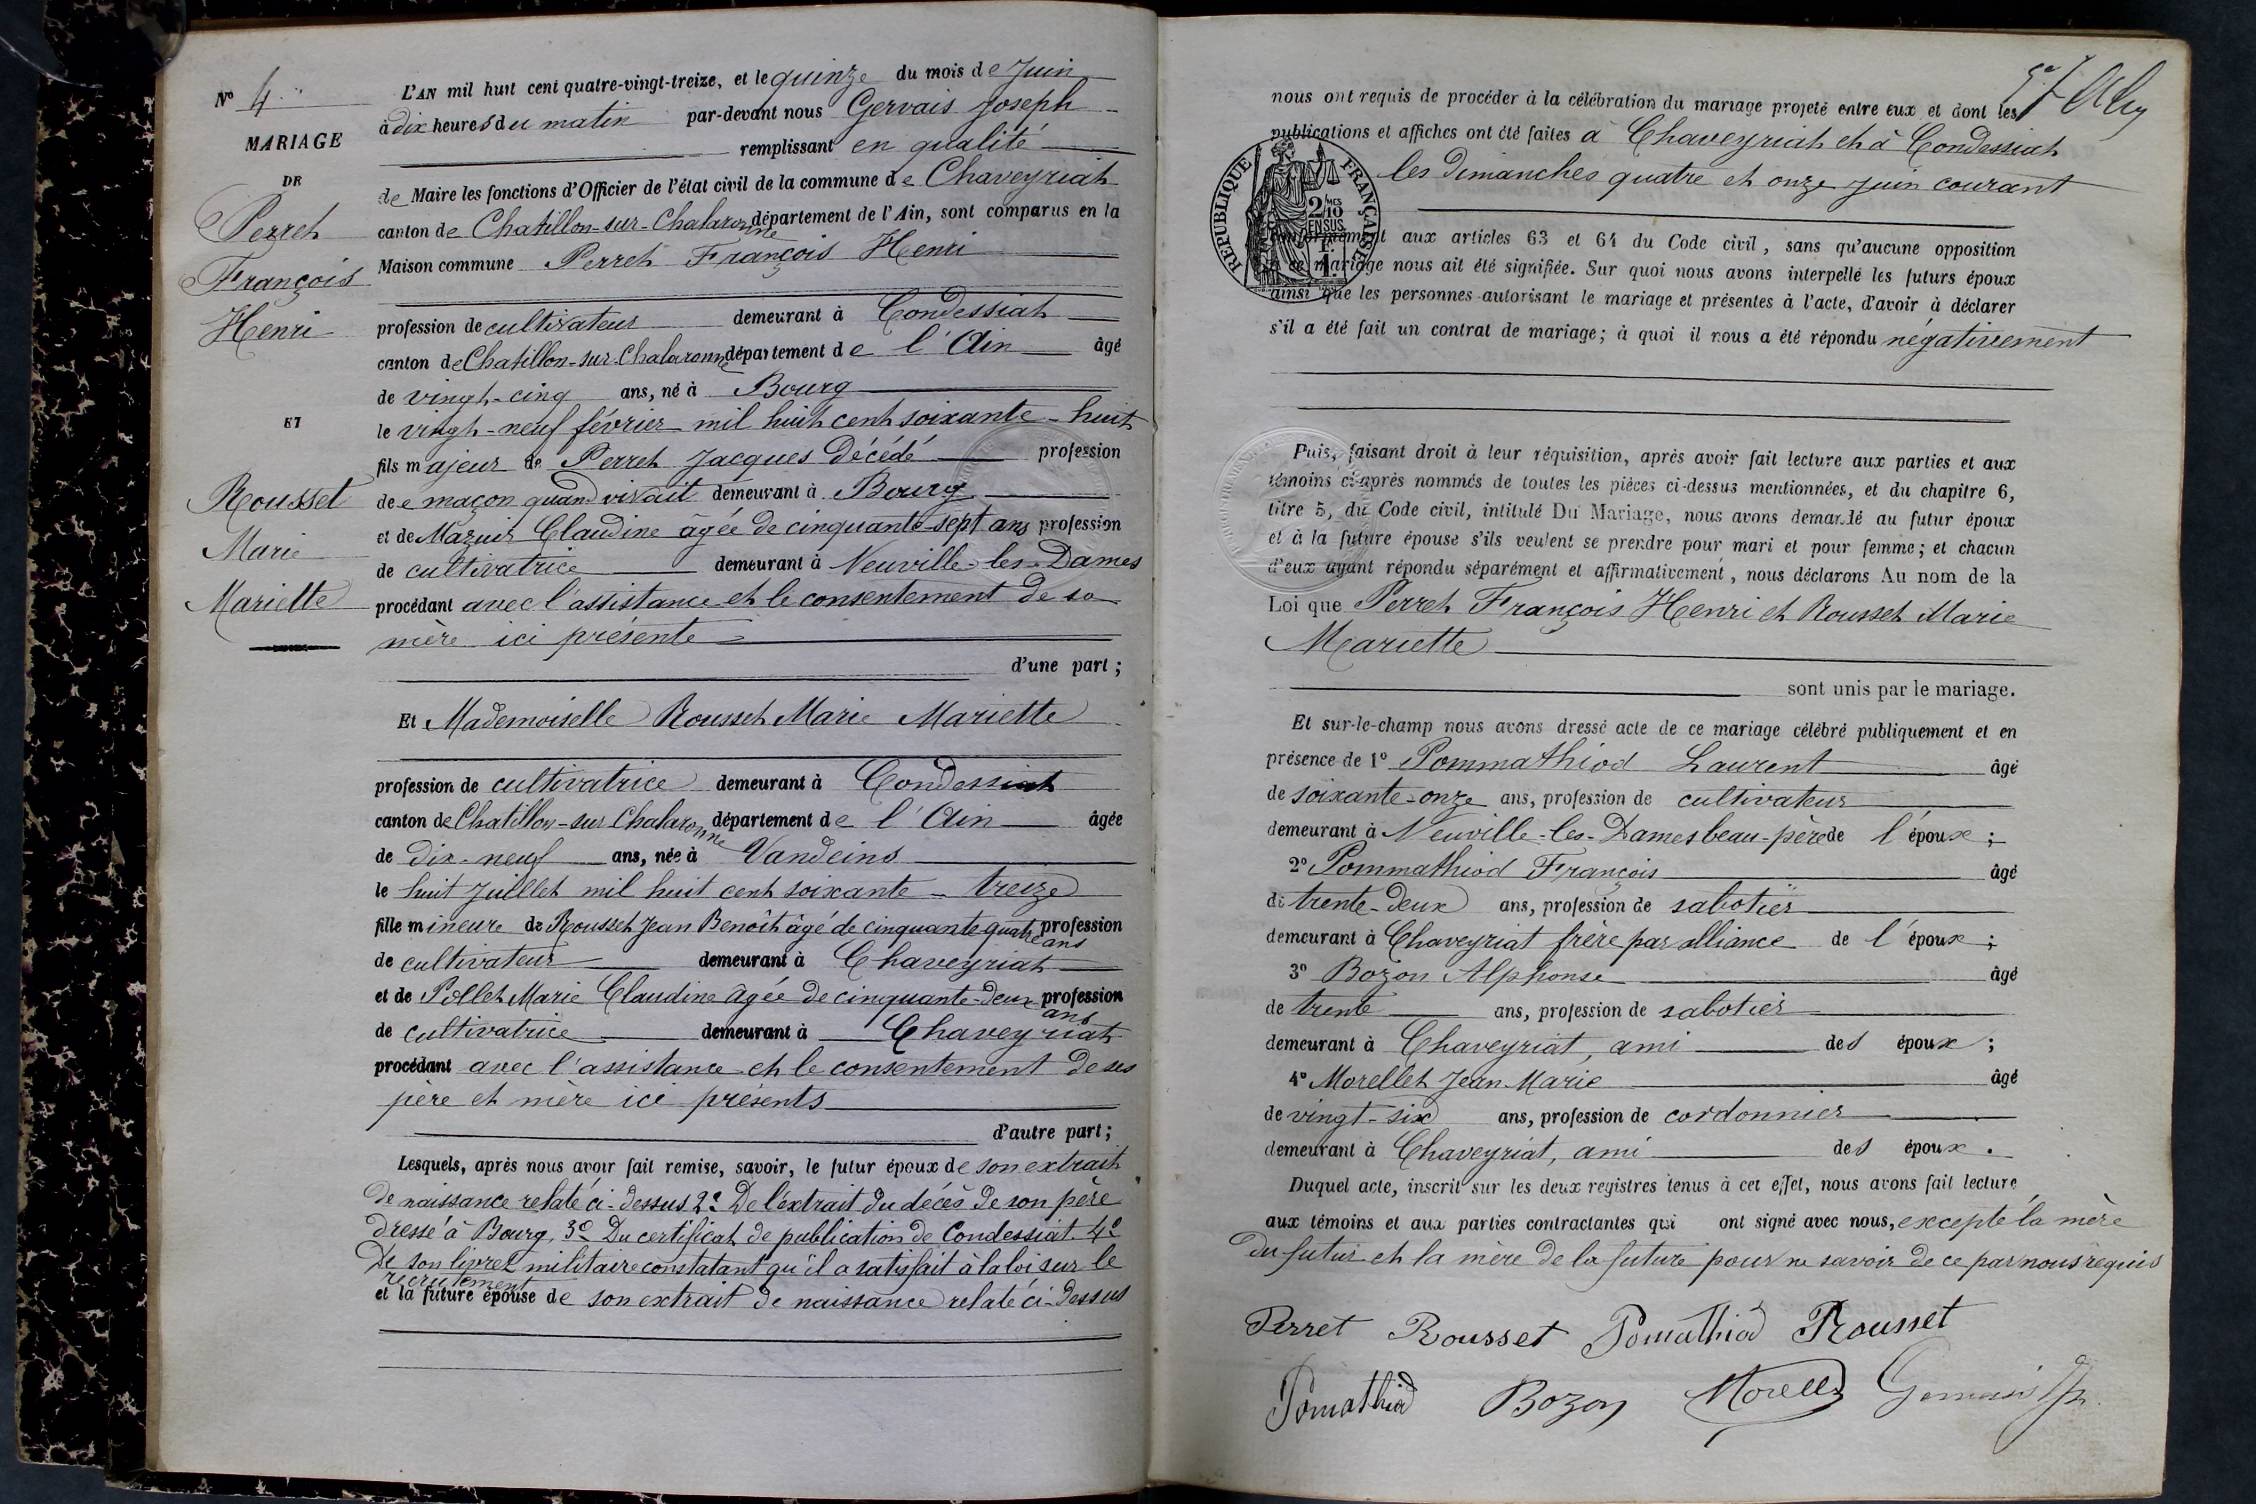 Nº 4
MARIAGE
DE
Perret
François
Henri
ET
Rousset
Marie
Mariette
L'AN mil huit cent quatre-vingt-treize, et le quinze du mois de Juin
à dix heures du matin par-devant nous Gervais Joseph
remplissant en qualité
de Maire les fonctions d'Officier de l'état civil de la commune de Chaveyriat
canton de Chatillon-sur-Chalaronne département de l'Ain, sont comparus en la
Maison commune Perret François Henri
profession de cultivateur demeurant à Condessiat
canton de Chatillon-sur-Chalaronne département de l'Ain âgé
de vingt-cinq ans, né à Bourg
le vingt-neuf février mil huit cent soixante-huit
fils majeur de Perret Jacques décédé profession
de maçon quand vivait demeurant à Bourg
et de Mazuir Claudine âgée de cinquante-sept ans profession
de cultivatrice demeurant à Neuville-les-Dames
procédant avec l'assistance et le consentement de sa
mère ici présente
d'une part ;
Et Mademoiselle Rousset Marie Mariette
profession de cultivatrice demeurant à Condessiat
canton de Chatillon-sur-Chalaronne département de l'Ain âgée
de dix-neuf ans, née à Vandeins
le huit Juillet mil huit cent soixante-treize
fille mineure de Rousset Jean Benoît âgé de cinquante quatre ans profession
de cultivateur demeurant à Chaveyriat
et de Pollet Marie Claudine âgée de cinquante-deux ans profession
de cultivatrice demeurant à Chaveyriat
procédant avec l'assistance et le consentement de ses
père et mère ici présents
d'autre part ;
Lesquels, après nous avoir fait remise, savoir, le futur époux de son extrait
de naissance relaté ci-dessus 2º De l'extrait du décès de son père
dressé à Bourg, 3º Du certificat de publication de Condessiat. 4º
De son livret militaire constatant qu'il a satisfait à la loi sur le
recrutement
et la future épouse de son extrait de naissance relaté ci-dessus
nous ont requis de procéder à la célébration du mariage projeté entre eux et dont les
publications et affiches ont été faites à Chaveyriat et à Condessiat
les Dimanches quatre et onze Juin courant
RÉPUBLIQUE FRANÇAISE
2/10 MES
EN SUS
1 F.
conformément aux articles 63 et 64 du Code civil, sans qu'aucune opposition
à ce mariage nous ait été signifiée. Sur quoi nous avons interpellé les futurs époux
ainsi que les personnes autorisant le mariage et présentes à l'acte, d'avoir à déclarer
s'il a été fait un contrat de mariage ; à quoi il nous a été répondu négativement
Puis, faisant droit à leur réquisition, après avoir fait lecture aux parties et aux
témoins ci-après nommés de toutes les pièces ci-dessus mentionnées, et du chapitre 6,
titre 5, du Code civil, intitulé Du Mariage, nous avons demandé au futur époux
et à la future épouse s'ils veulent se prendre pour mari et pour femme ; et chacun
d'eux ayant répondu séparément et affirmativement, nous déclarons Au nom de la
Loi que Perret François Henri et Rousset Marie
Mariette
sont unis par le mariage.
Et sur-le-champ nous avons dressé acte de ce mariage célébré publiquement et en
présence de 1º Pommathiod Laurent âgé
de soixante-onze ans, profession de cultivateur
demeurant à Neuville-les-Dames beau-père de l'époux ;
2º Pommathiod François âgé
de trente-deux ans, profession de sabotier
demeurant à Chaveyriat frère par alliance de l'époux ;
3º Bozon Alphonse âgé
de trente ans, profession de sabotier
demeurant à Chaveyriat, ami des époux ;
4º Morellet Jean Marie âgé
de vingt-six ans, profession de cordonnier
demeurant à Chaveyriat, ami des époux.
Duquel acte, inscrit sur les deux registres tenus à cet effet, nous avons fait lecture
aux témoins et aux parties contractantes qui ont signé avec nous, excepté la mère
du futur et la mère de la future pour ne savoir de ce par nous requis
Perret Rousset Pomathiod Rousset
Pomathiod Bozon Morellet Gervais Jh